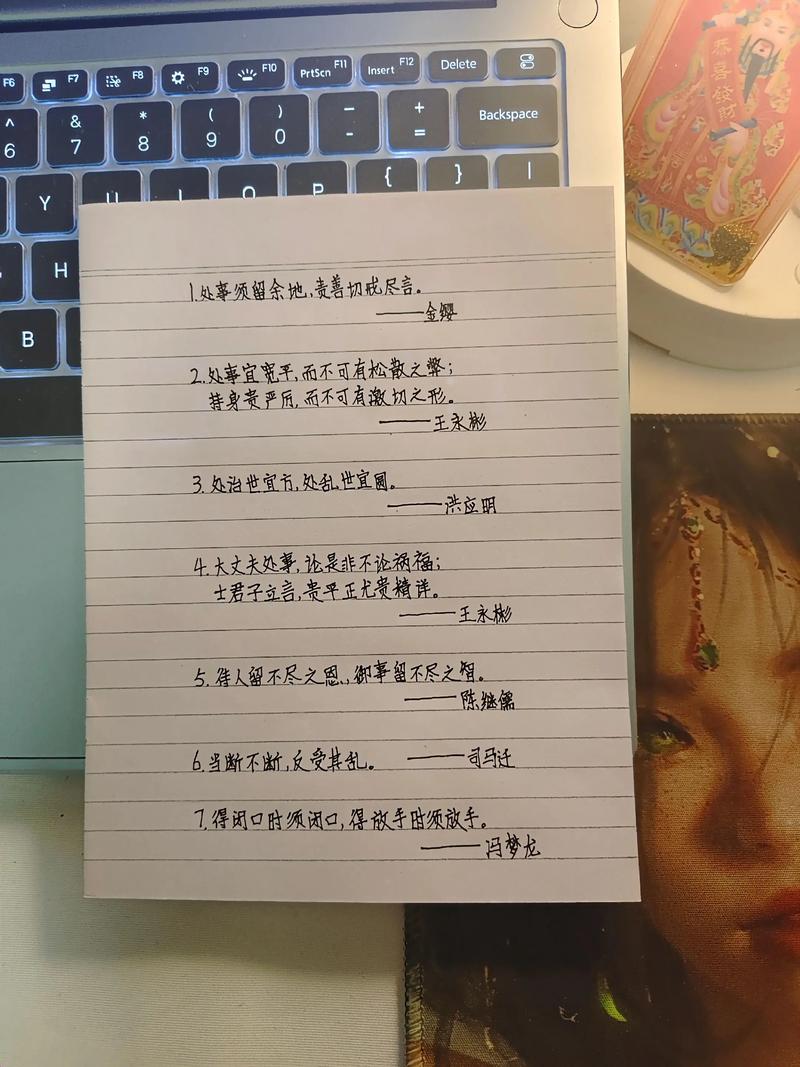 F6 F7 F8 F9 F10 PrtScn F11 Insert F12 Delete
^ & * ( ) — +
6 7 8 9 0 - = Backspace
Y U I O P { } |
H
B
恭喜發財
1.处事须留余地,责善切戒尽言。
——金缨
2.处事宜宽平,而不可有松散之弊;
持身贵严厉,而不可有激切之形。
——王永彬
3.处治世宜方,处乱世宜圆。
——洪应明
4.大丈夫处事,论是非不论祸福;
士君子立言,贵平正尤贵精详。
——王永彬
5.待人留不尽之恩,御事留不尽之智。
——陈继儒
6.当断不断,反受其乱。 ——司马迁
7.得闭口时须闭口,得放手时须放手。
——冯梦龙